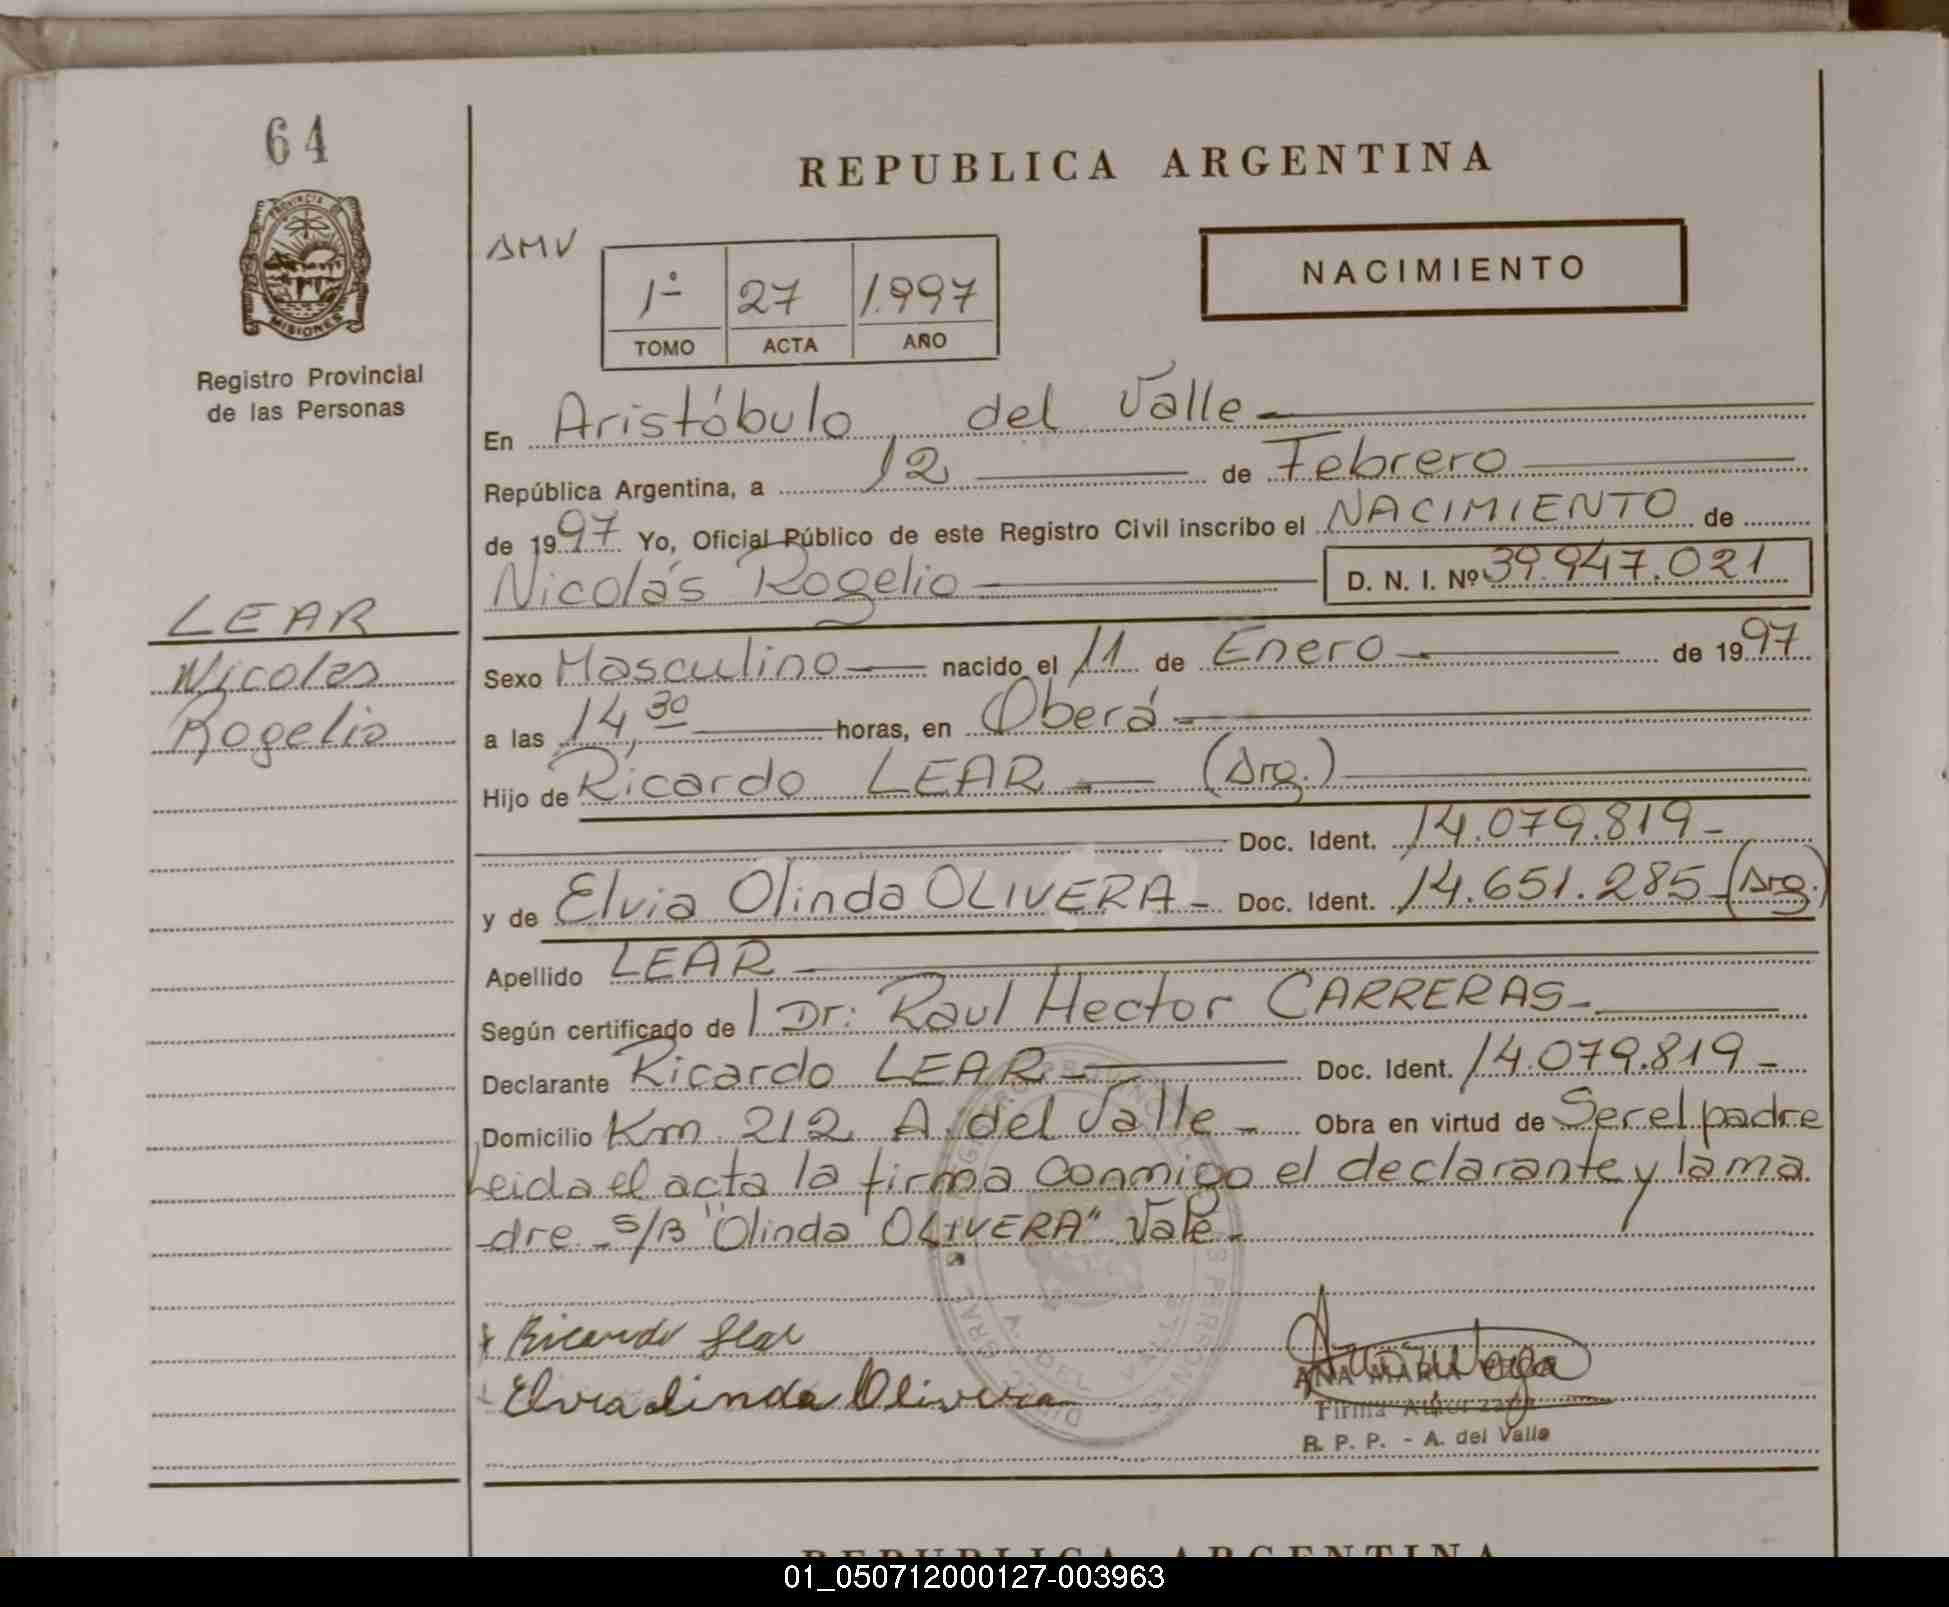 64
PROVINCIA DE
MISIONES
Registro Provincial
de las Personas
LEAR
Nicolas
Rogelio
REPUBLICA ARGENTINA
AMV
1º 27 1.997
TOMO ACTA AÑO
NACIMIENTO
En Aristóbulo del Valle
República Argentina, a 12 de Febrero
de 1997 Yo, Oficial Público de este Registro Civil inscribo el NACIMIENTO de
Nicolás Rogelio D. N. I. Nº 39.947.021
Sexo Masculino nacido el 11 de Enero de 1997
a las 14,30 horas, en Oberá
Hijo de Ricardo LEAR (Arg.)
Doc. Ident. 14.079.819
y de Elvia Olinda OLIVERA Doc. Ident. 14.651.285 (Arg.)
Apellido LEAR
Según certificado de Dr: Raul Hector CARRERAS
Declarante Ricardo LEAR Doc. Ident. 14.079.819
Domicilio Km 212 A. del Valle Obra en virtud de Ser el padre
Leida el acta la firma conmigo el declarante y la ma
dre S/B "Olinda OLIVERA" Vale
Ricardo Lear
Elvia olinda Olivera
ANA MARIA
Firma Autorizada
R. P. P. - A. del Valle
REPUBLICA ARGENTINA
01_050712000127-003963